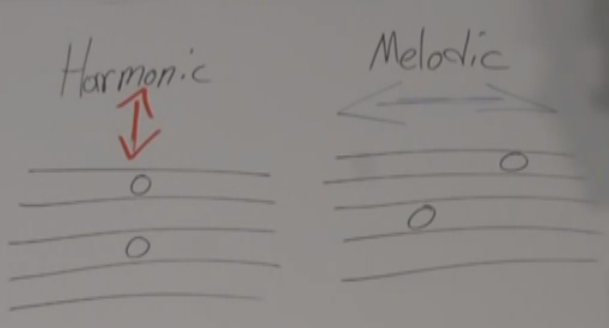 Harmonic
Melodic